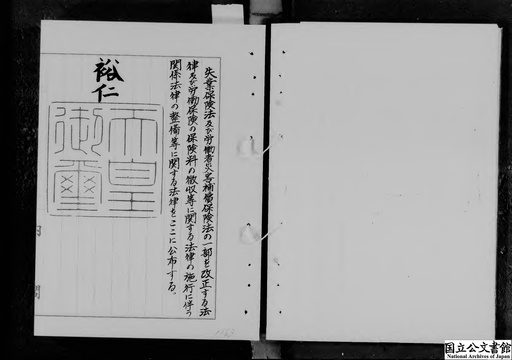 失業保険法及び労働者災害補償保険法の一部を改正する法
律及び労働保険の保険料の徴収等に関する法律の施行に伴う
関係法律の整備等に関する法律をここに公布する。
裕仁
天皇
御璽
国立公文書館
National Archives of Japan